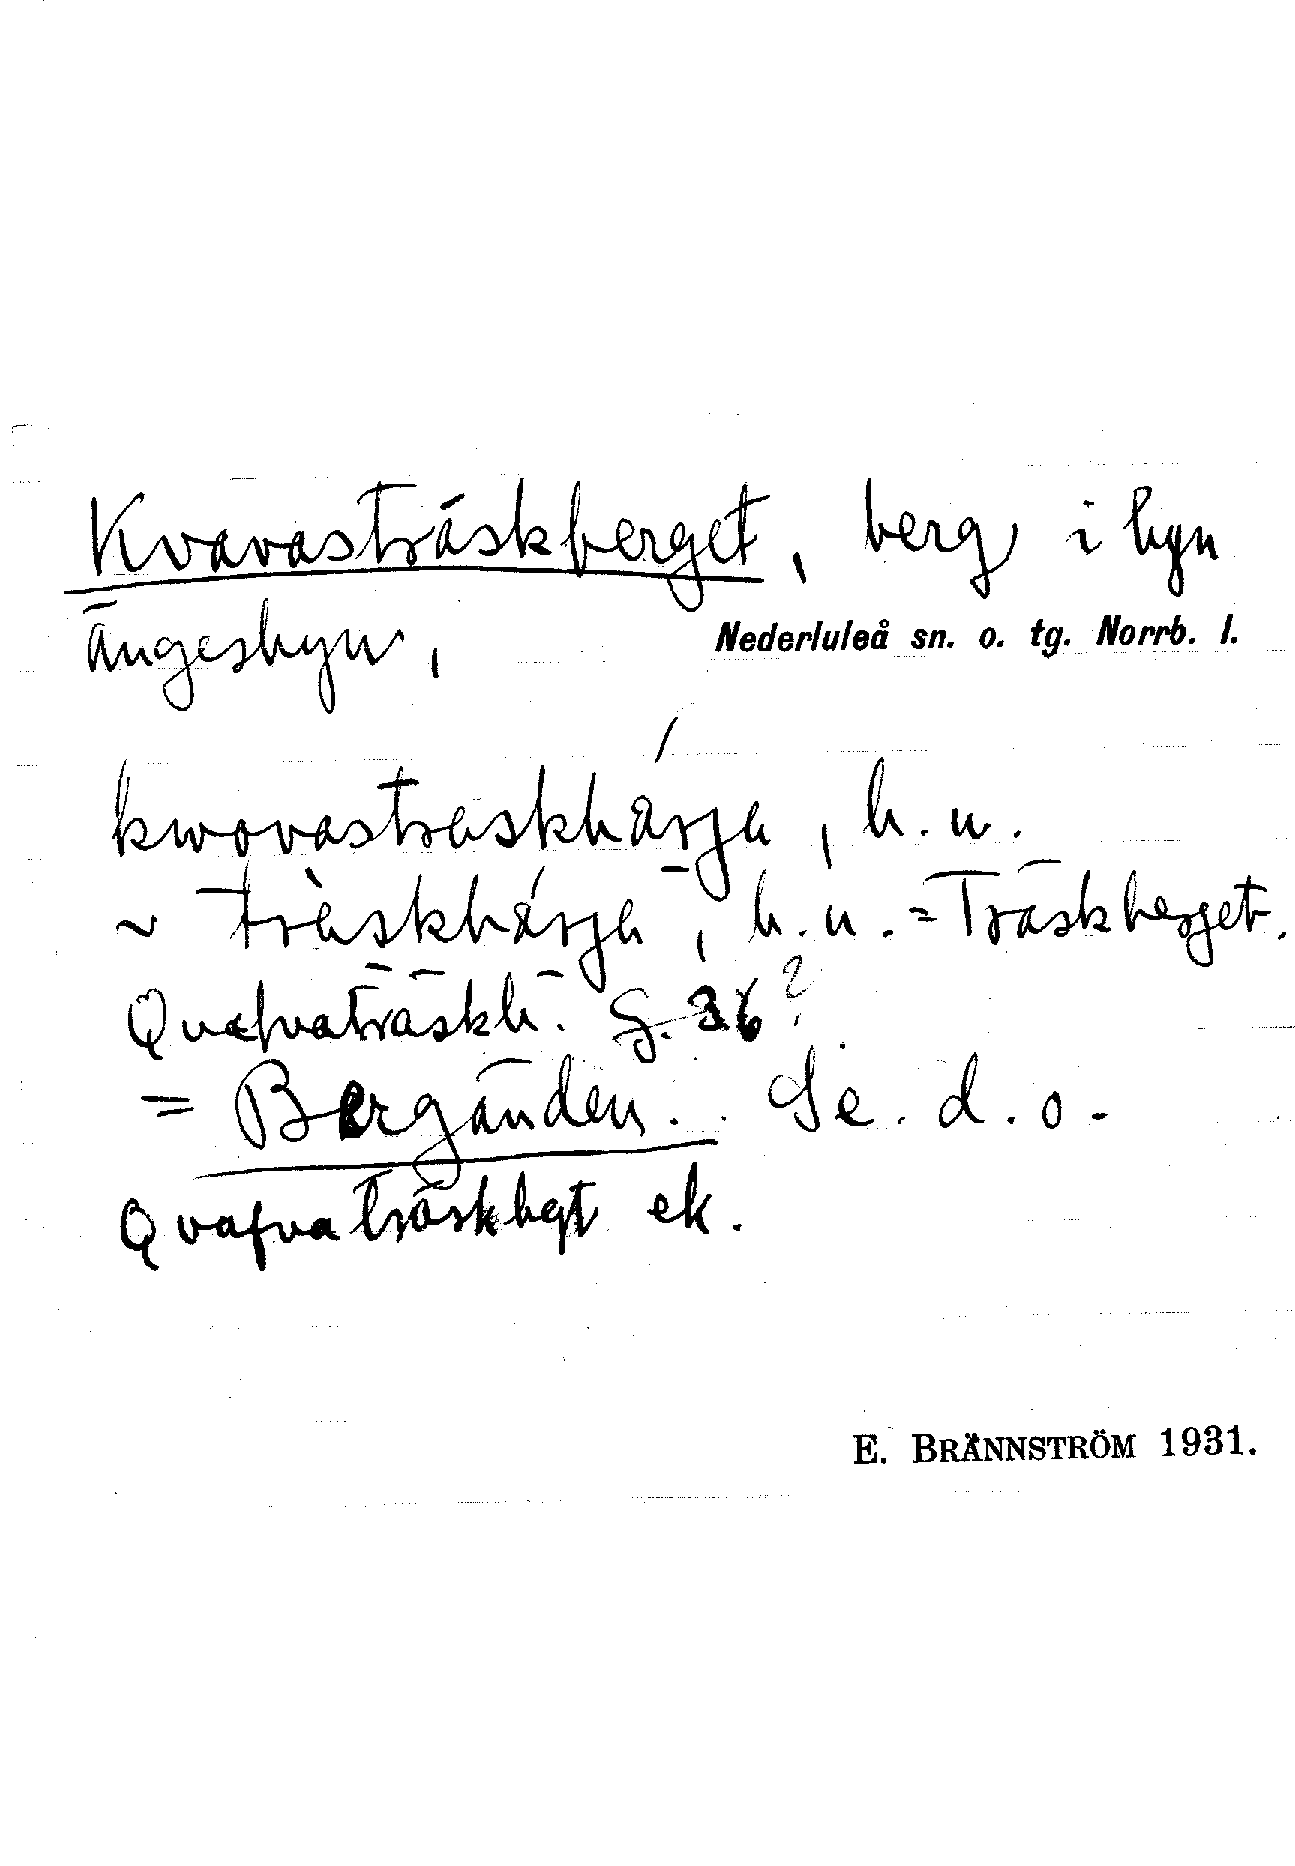 Kvavasträskberget, berg i byn
Ängesbyn,
Nederluleå sn. o. tg. Norrb. l.
kwovastraskbárja, b. u.
~ tràskbárja, b. u. = Träskberget.
Qvafvaträskb. G. 36?
= Bergänden. Se. d. o.
Qvafvaträskbgt ek.
E. BRÄNNSTRÖM 1931.